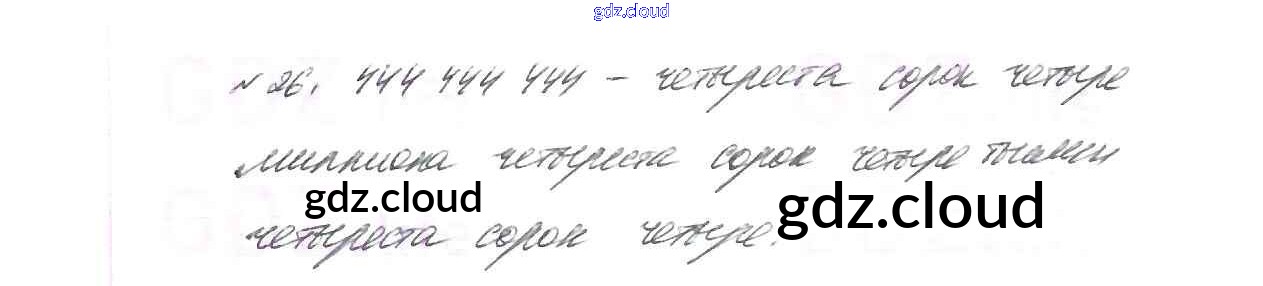 gdz.cloud
№26. 444 444 444 – четыреста сорок четыре
миллиона четыреста сорок четыре тысячи
gdz.cloud gdz.cloud
четыреста сорок четыре.